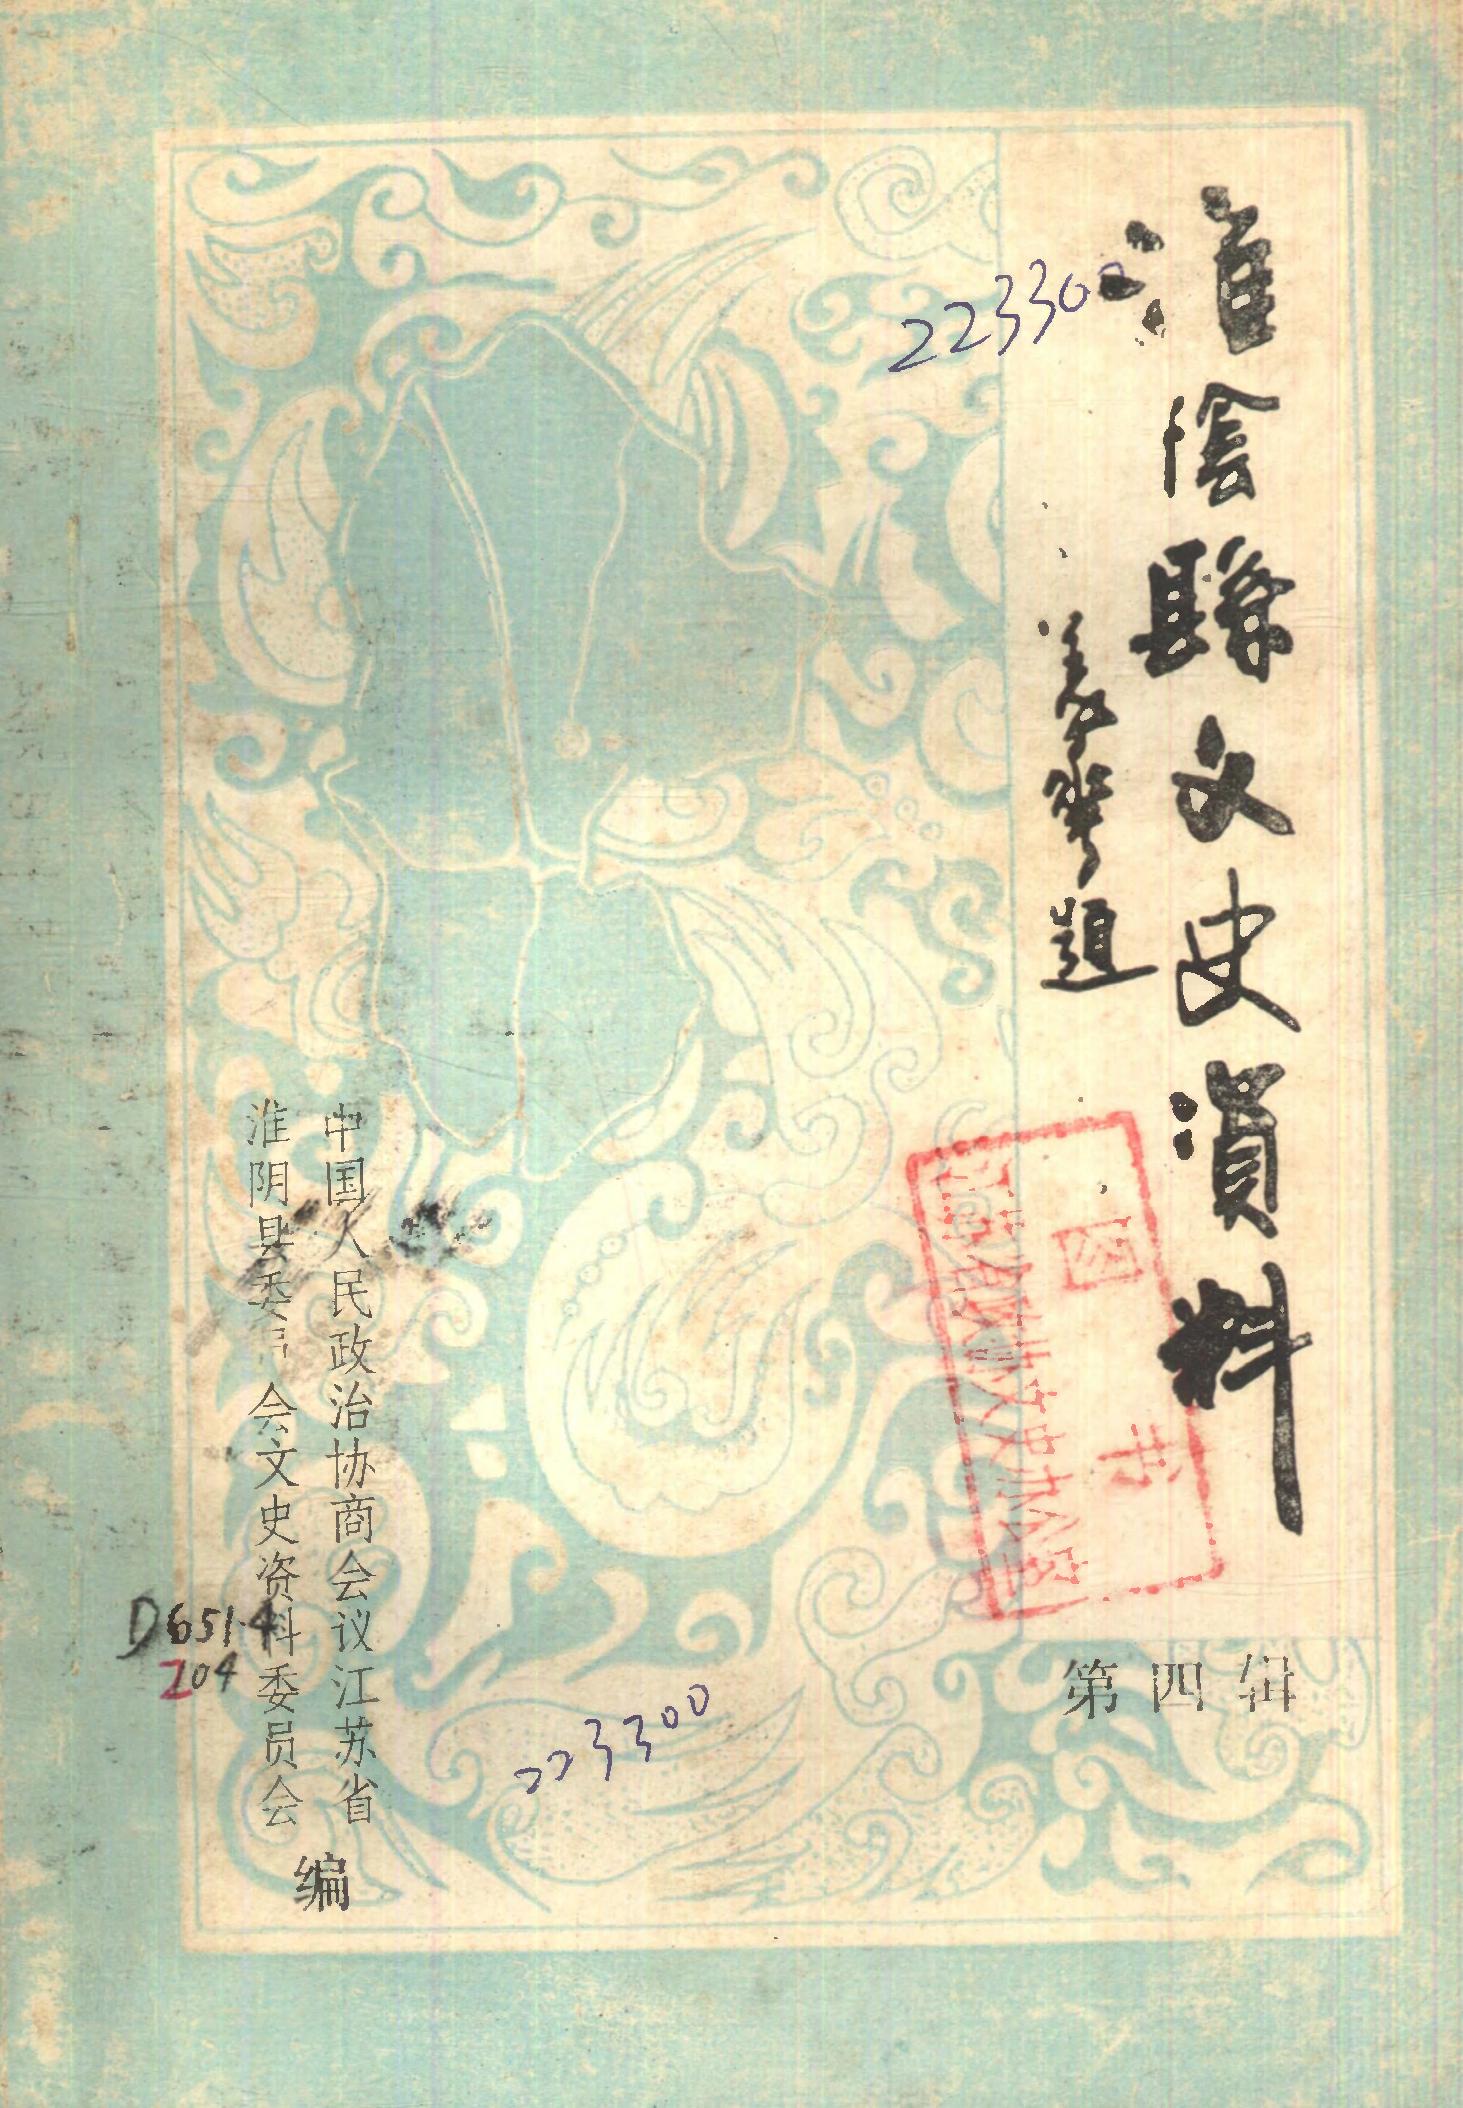 淮陰縣文史資料
题
223300
图书
第四辑
中国人民政治协商会议江苏省
淮阴县委员会文史资料委员会
编
D651.4
204
223300